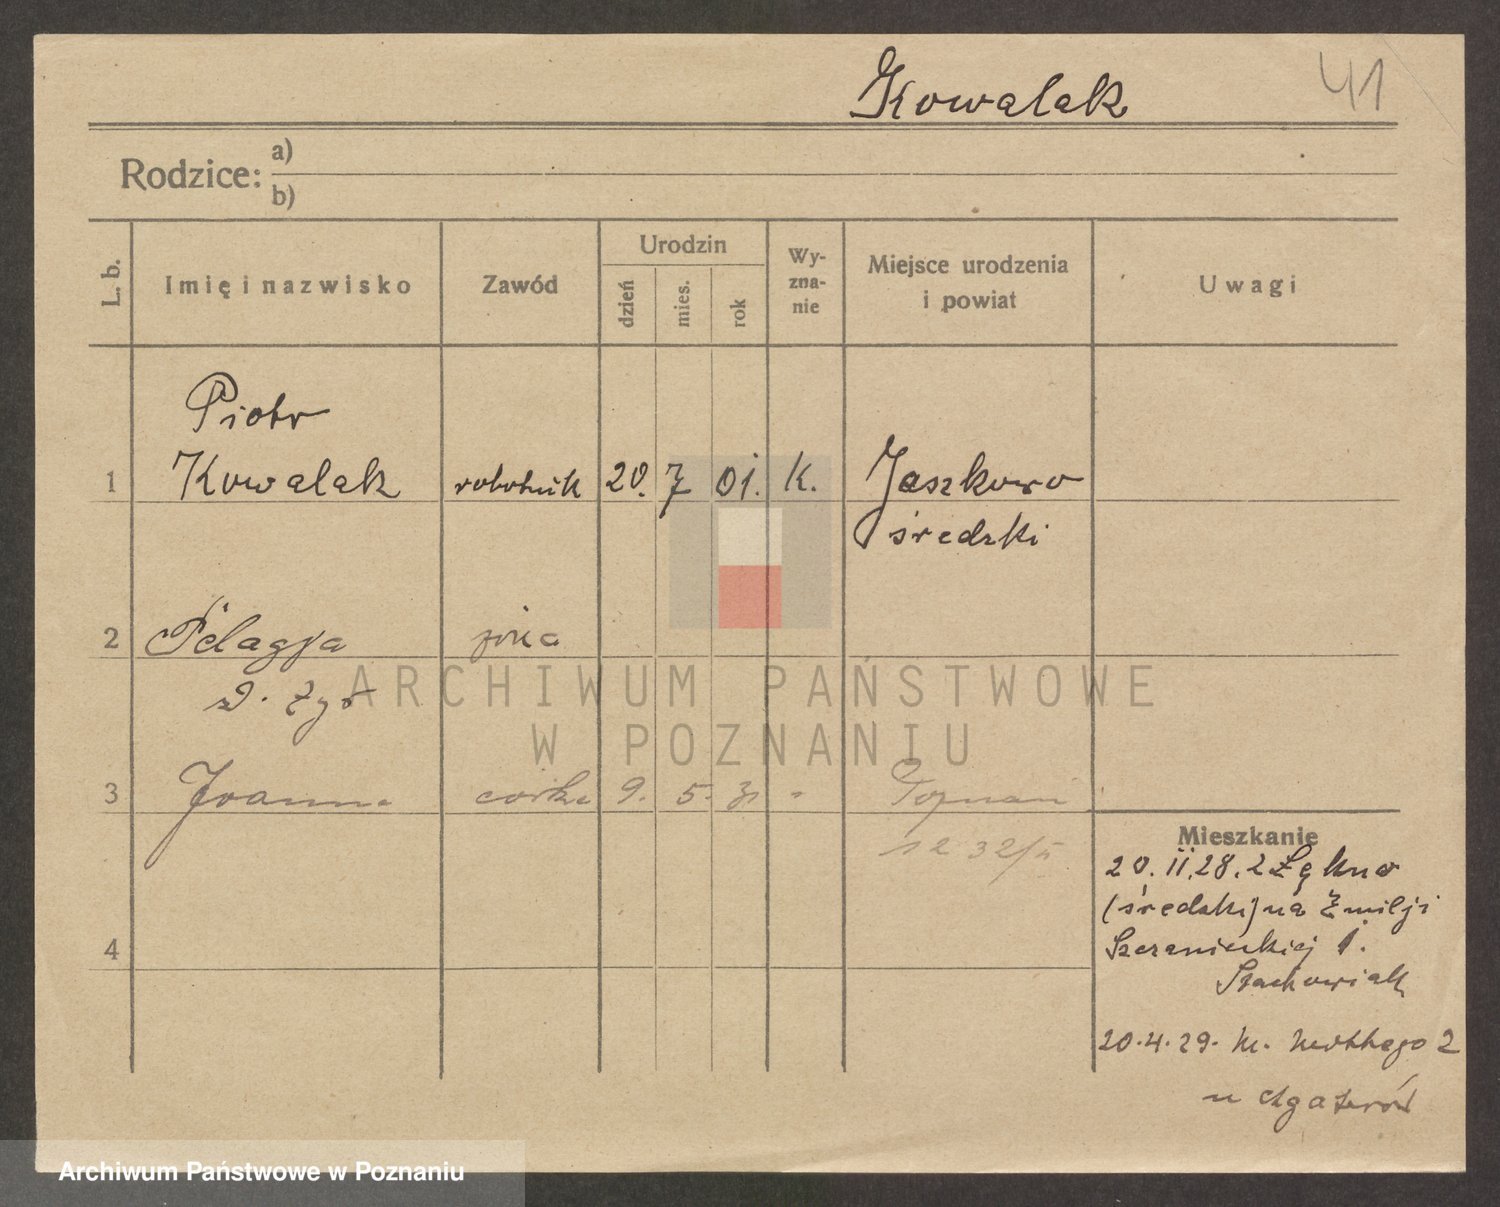 Kowalak
41
Rodzice: a)
b)
L. b.
Imię i nazwisko
Zawód
Urodzin
dzień
mies.
rok
Wy-
zna-
nie
Miejsce urodzenia
i powiat
Uwagi
Piotr
1 Kowalak robotnik 20. 7 01. K. Jaszkowo
średzki
2 Pelagja żona
3 Joanna córka 9. 5. Poznań
Mieszkanie
20. II. 28. z Łękno
(średzki) na Emilji
Sczanieckiej 1.
Stachowiak
4
20.4.29. 2
u
ARCHIWUM PAŃSTWOWE
W POZNANIU
Archiwum Państwowe w Poznaniu